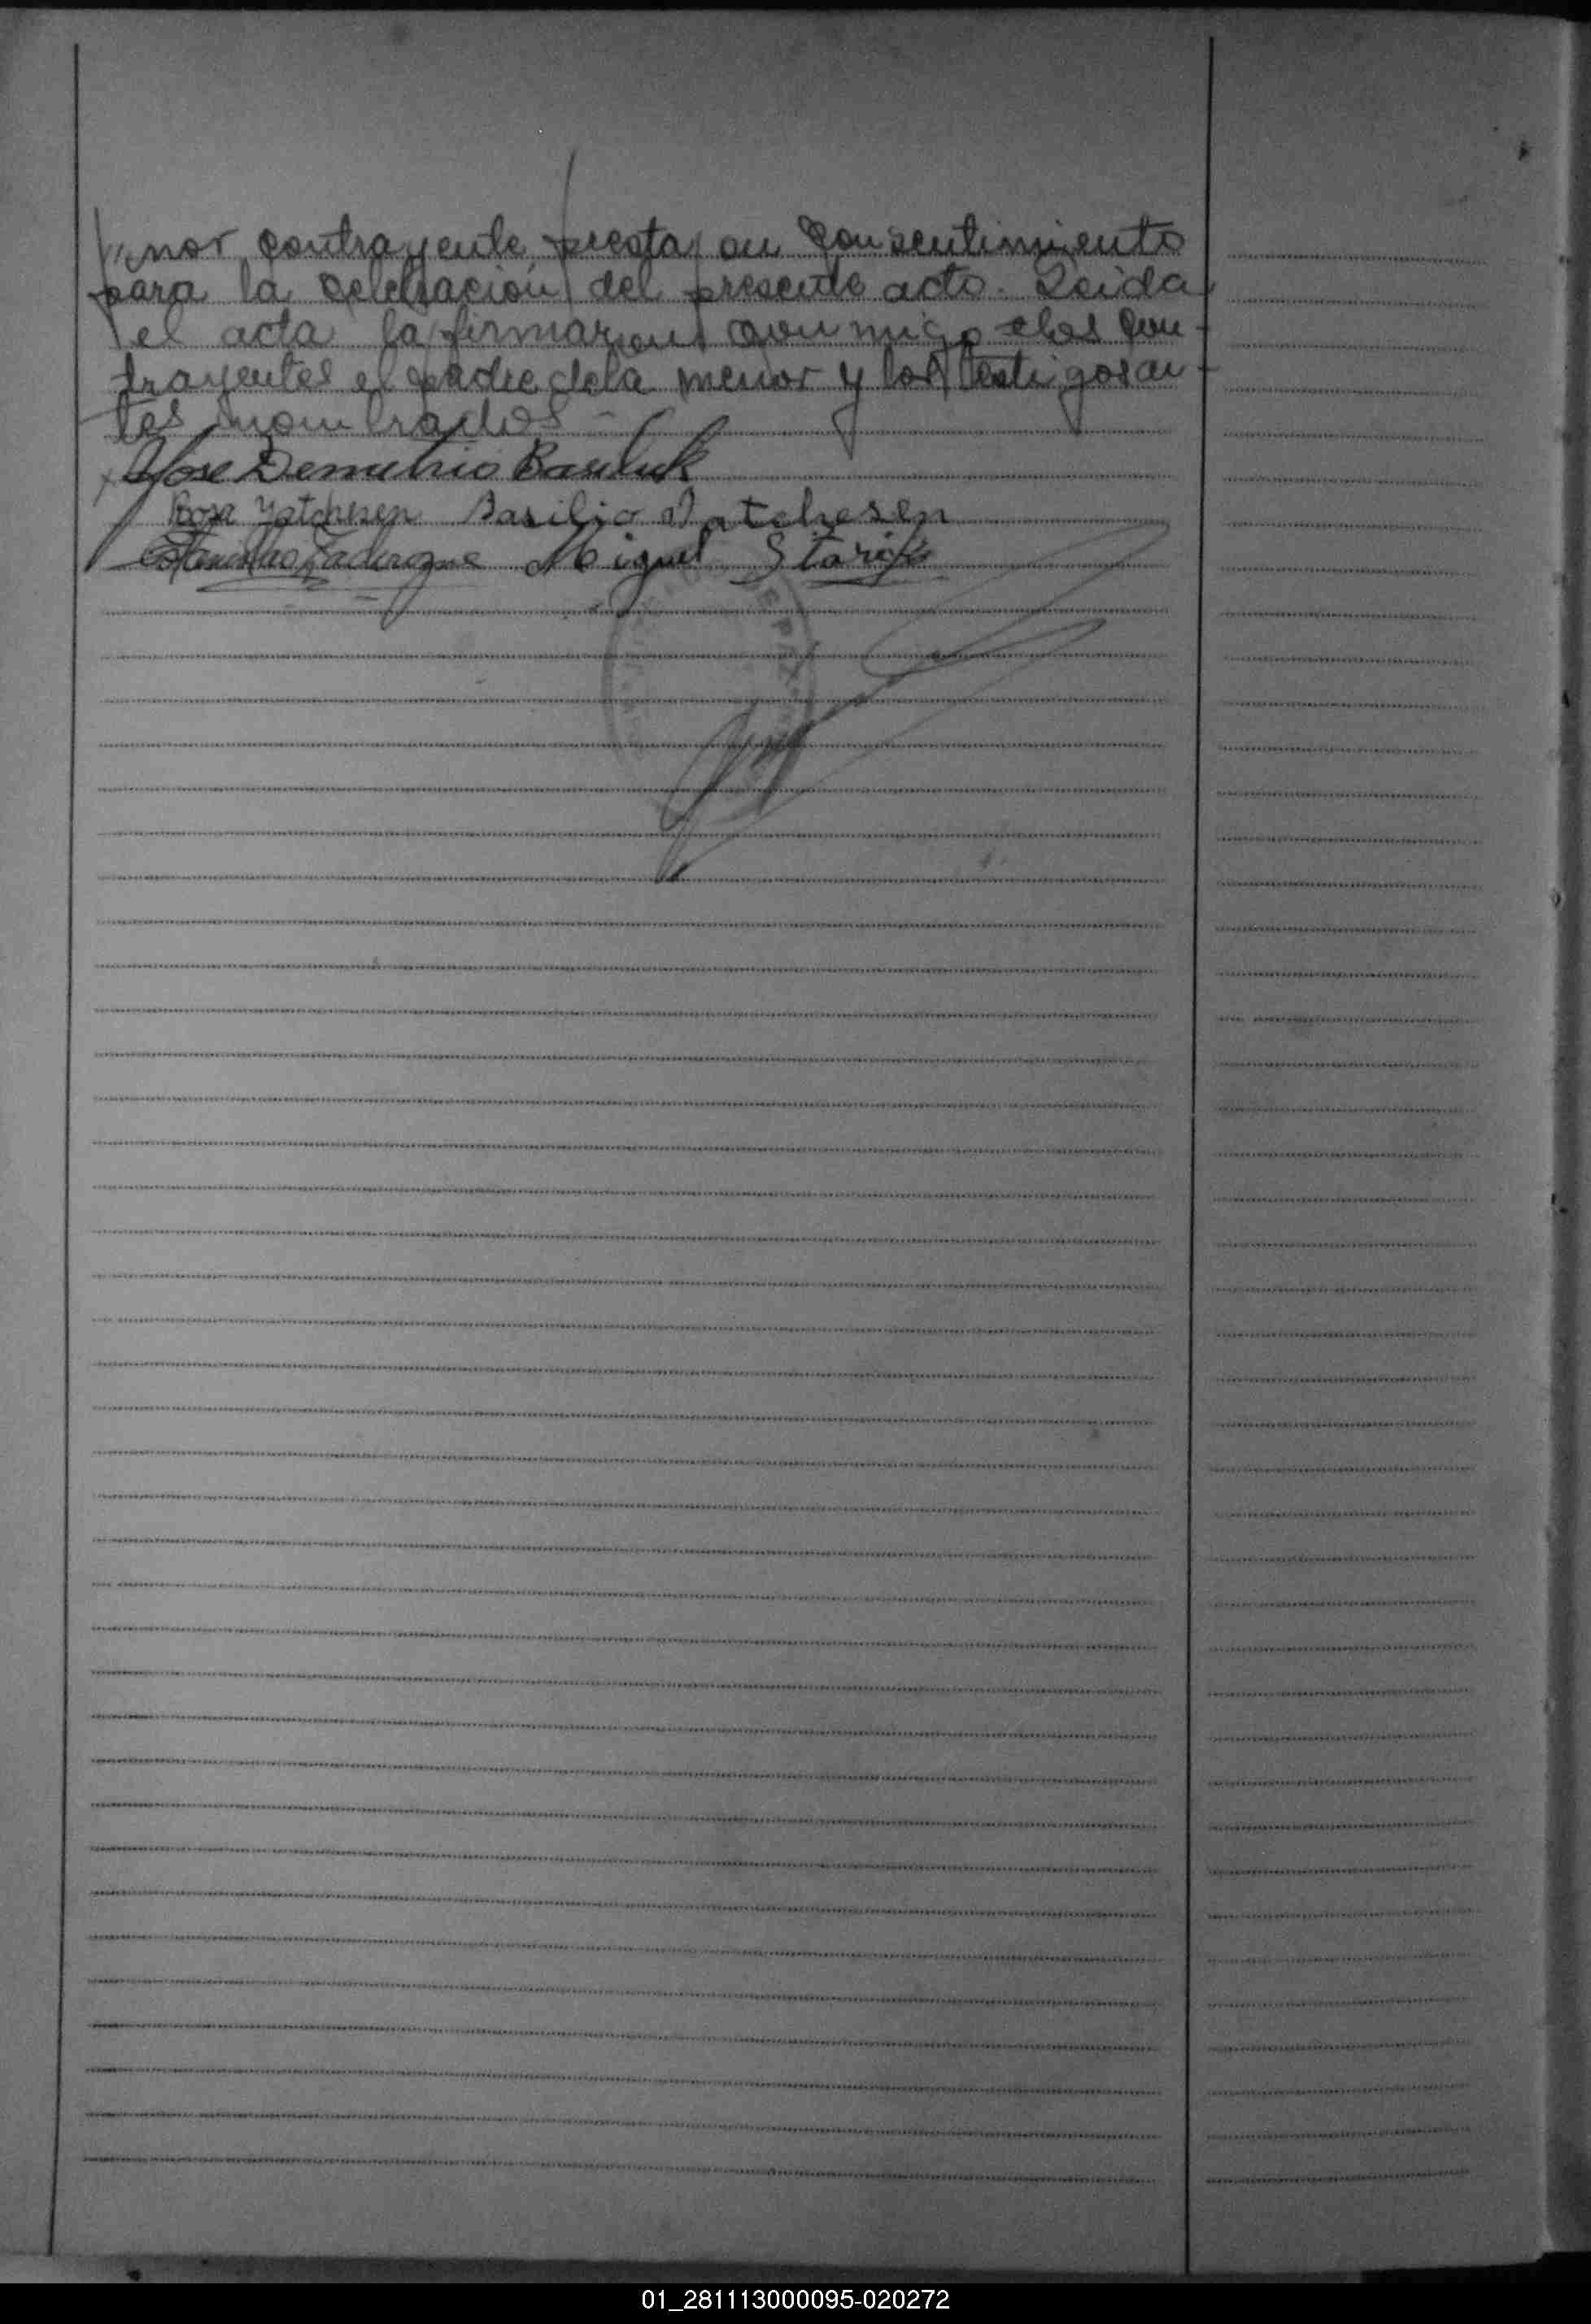 "nor contrayente presta su consentimiento
para la celebración del presente acto. Leida
el acta la firmaron conmigo los con-
trayentes el padre de la menor y los testigos an-
tes nombrados
Jose Demetrio
Rosa Yatchesen Basilio Yatchesen
Miguel
01_281113000095-020272